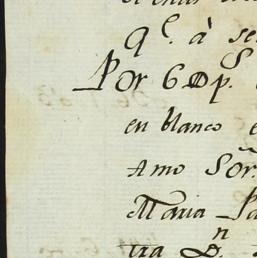 Q.ᵉ à se
Por 6 Dp.ˢ
en blanco e
Amo Sor.
Maria Pa
via D.ⁿ